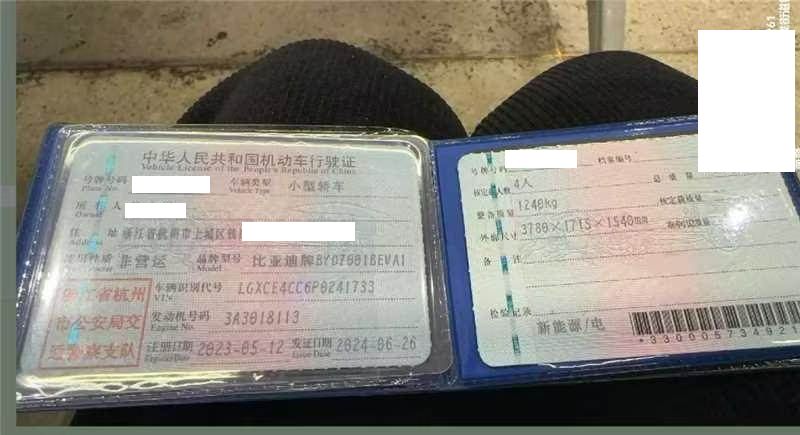 中华人民共和国机动车行驶证
Vehicle License of the People's Republic of China
号牌号码
Plate No.
车辆类型 小型轿车
Vehicle Type
所有人
Owner
住 址 浙江省杭州市上城区
Address
使用性质 非营运
品牌型号 比亚迪牌BYD7001BEVA1
Model
浙江省杭州
市公安局交
通警察支队
车辆识别代号 LGXCE4CC6P0241733
VIN
发动机号码 3A3018113
Engine No.
注册日期 2023-05-12 发证日期 2024-06-26
Register Date Issue Date
号牌号码 档案编号
核定人数 4人 总质量
整备质量 1240kg 核定载质量
外廓尺寸 3780×1715×1540mm
备 注
检验记录
新能源/电